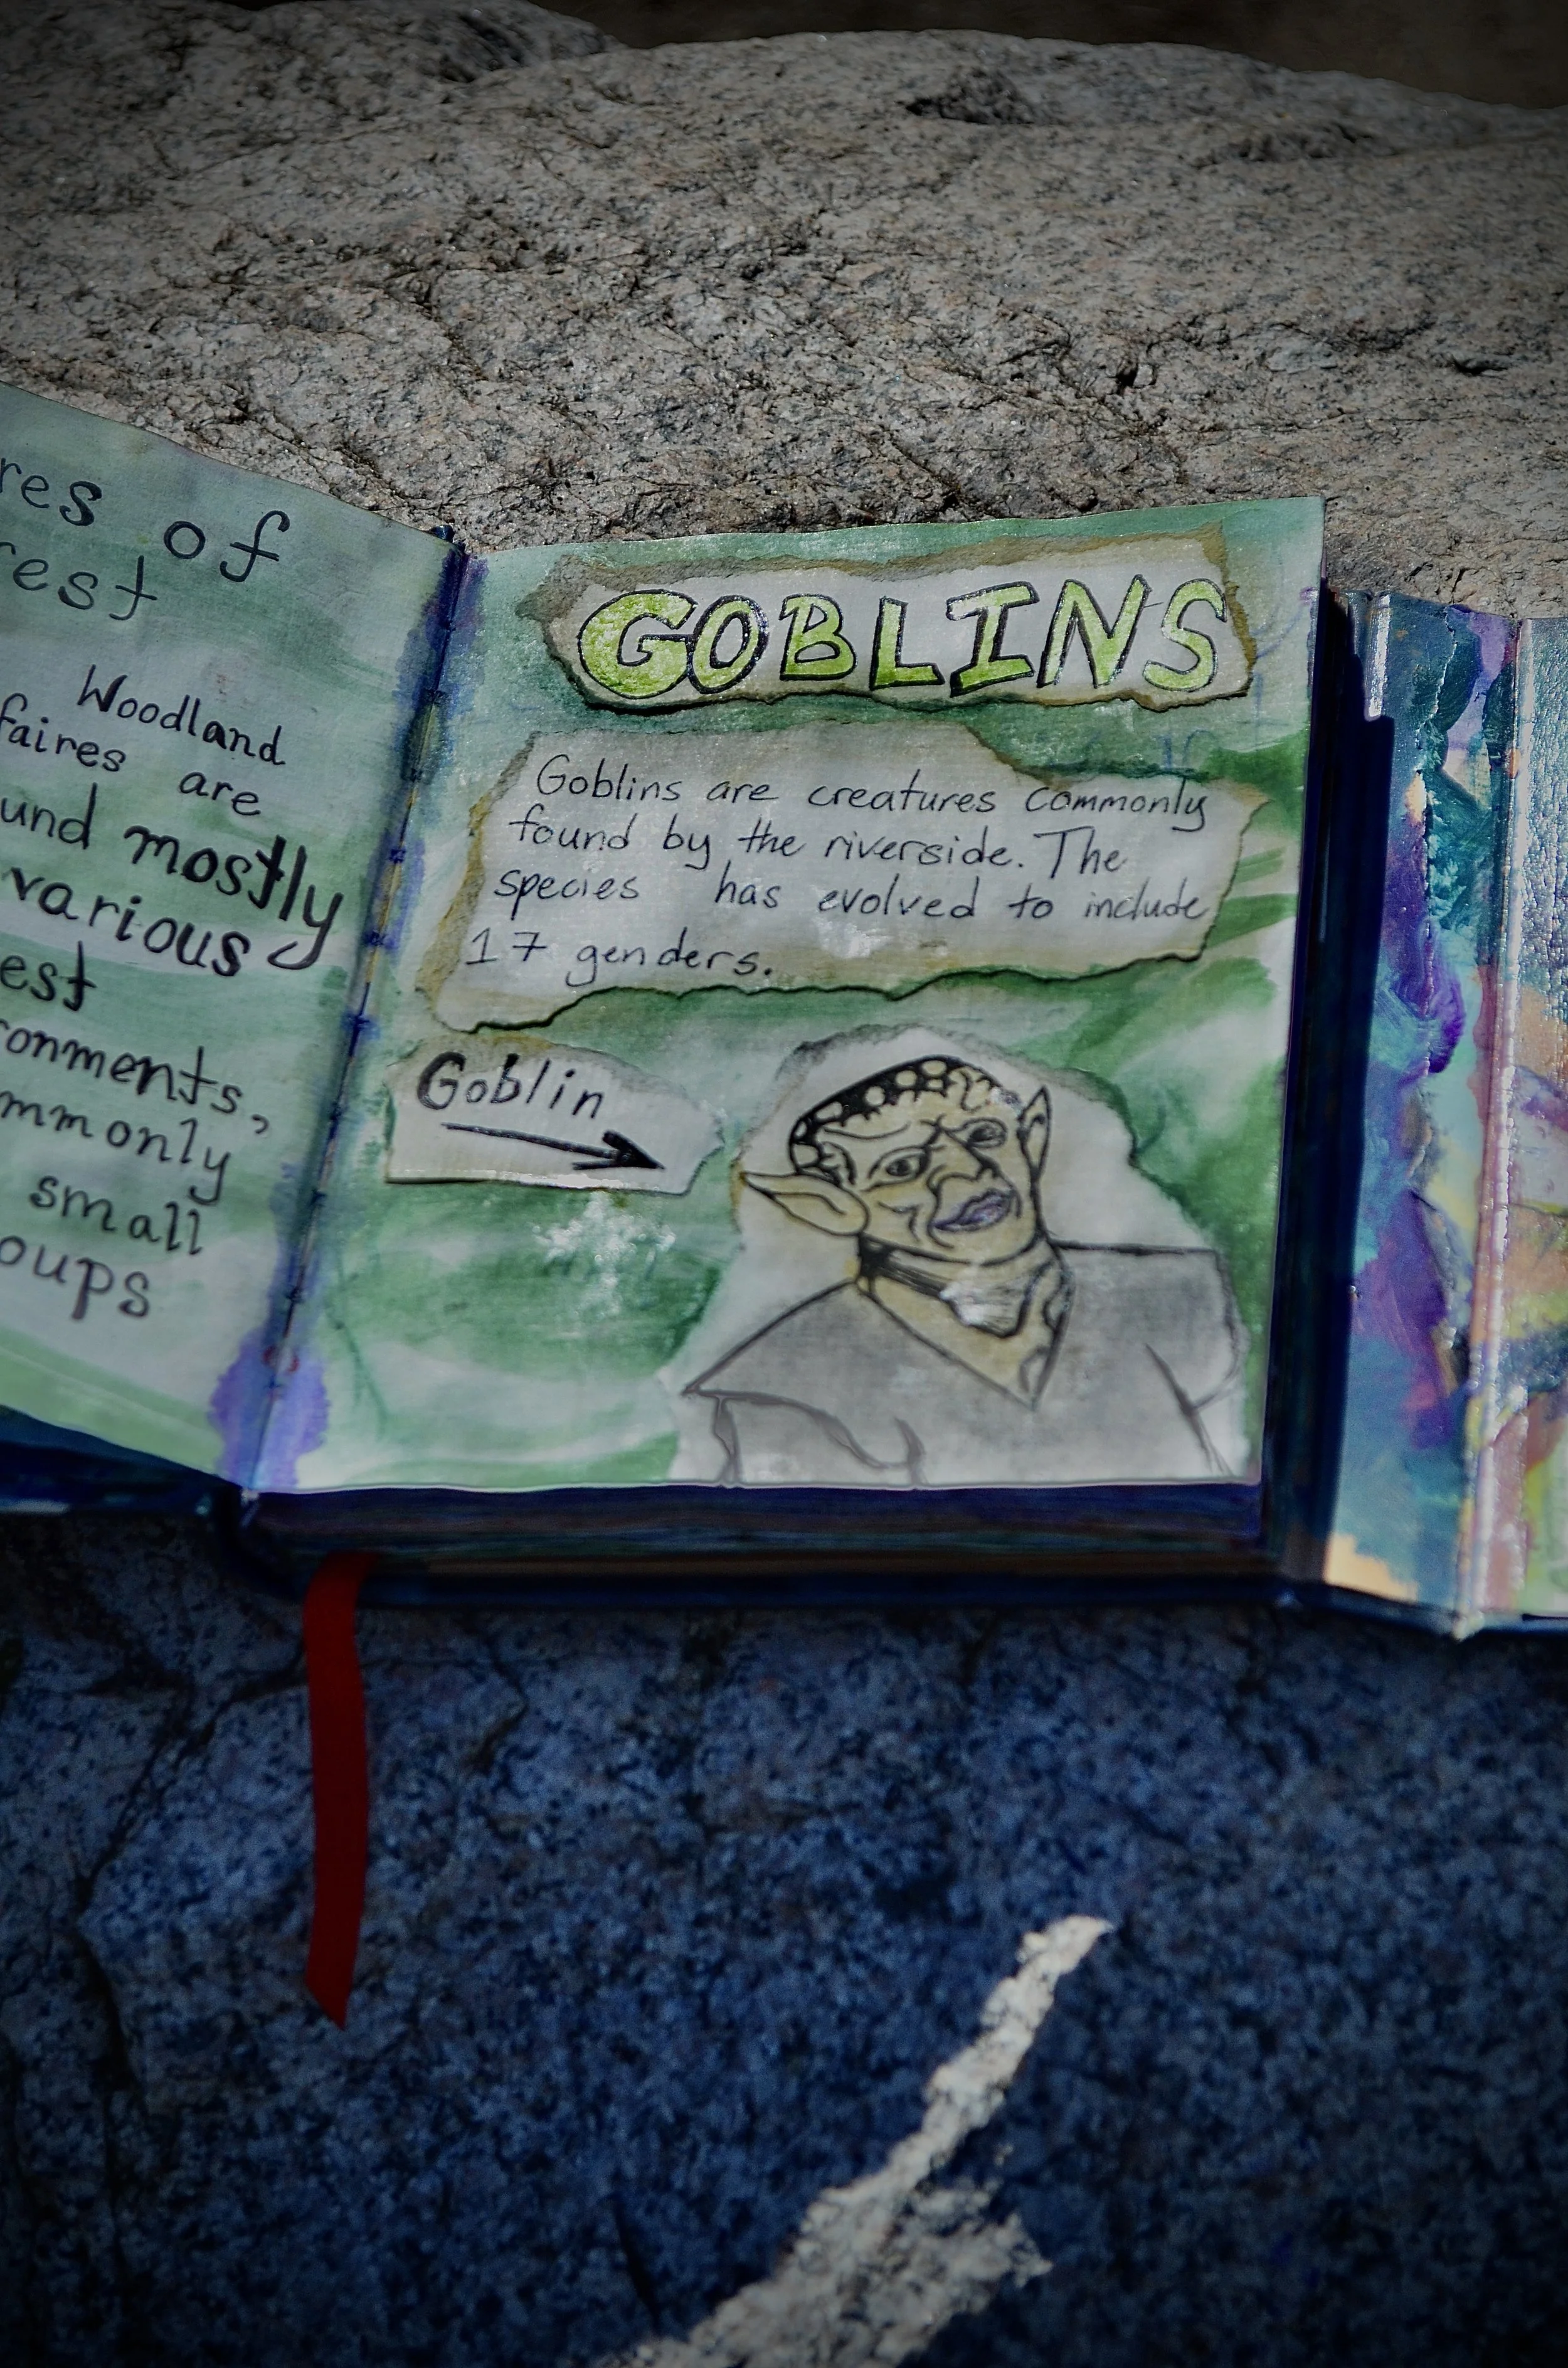 of
Woodland
faires are
mostly
various
small
GOBLINS
Goblins are creatures commonly
found by the riverside. The
species has evolved to include
17 genders.
Goblin